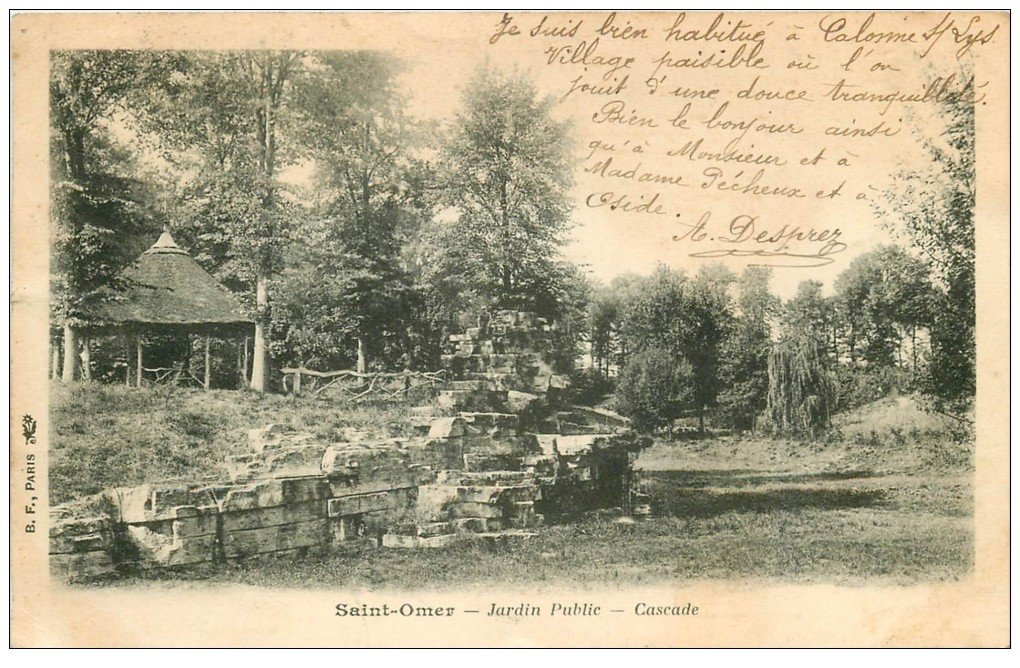 Je suis bien habitué à Calonne s/ Lys
Village paisible où l'on
jouit d'une douce tranquillité.
Bien le bonjour ainsi
qu'à Monsieur et à
Madame Pécheux et à
Oside.
A. Desprez
B. F., PARIS
Saint-Omer — Jardin Public — Cascade